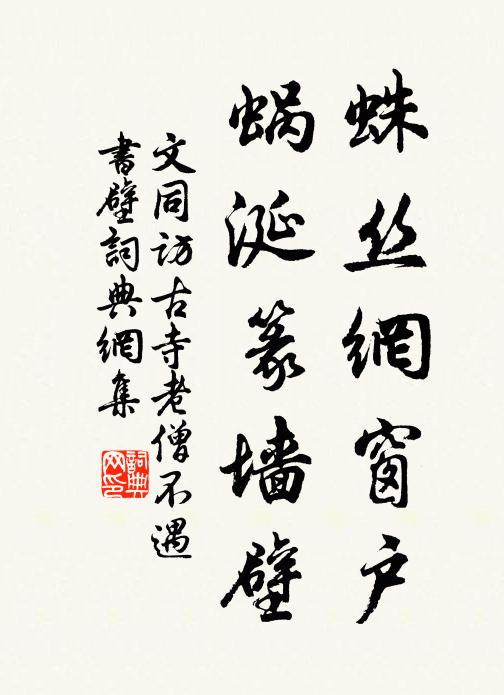 蛛丝網窗户
蜗涎篆墙壁
文同访古寺老僧不遇
書壁詞典網集
詞典網印